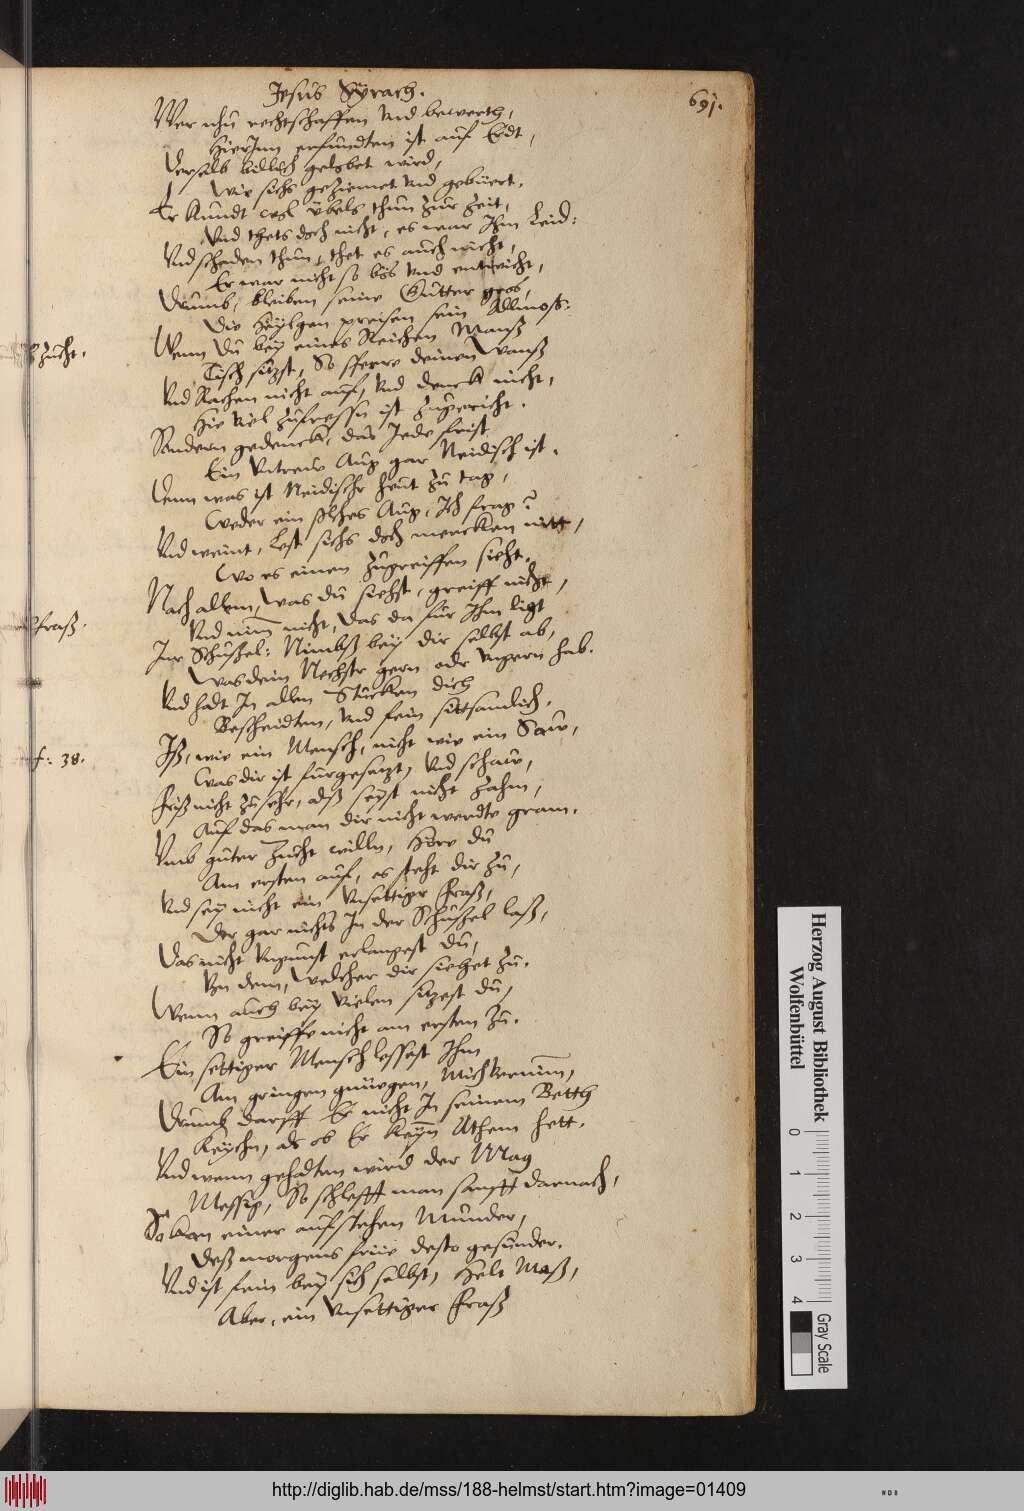 Jesus Syrach.
691.
Wer nhu rechtschaffen Vnd bewerth,
Hierinn erfundten ist auf Erdt,
Derselb billich gelobet wird,
Wie sichs geziemet Vnd gebüert.
Er kundt wol übels thun zur Zeit,
Vnd thets doch nicht, es war Ihm Leid:
Vnd schaden thun, thet es auch nicht,
Er war nicht so bös Vnd entwicht,
Drumb, bleiben seine Gütter gros,
Die Heylgen preisen sein Allmoß:
Zucht.
Wenn du bey eines Reichen Manß
Tisch sitzst, So sperre deinen Wanß
Vnd Rachen nicht auf, Vnd denck nicht,
Hie Viel zufressn ist zugericht.
Sondern gedenck, das Jede frist
Ein Vntrew Aug gar Neidisch ist.
Denn was ist Neidischr heut zu tag,
Weder ein solches Aug, Ich frag?
Vnd weint, Lest sichs doch mercken nitt,
Wo es einen zugreiffen sieht.
Nach allem, Was du siehst, greiff nicht,
Vnd nim nicht, Das da für Ihm ligt
fraß.
Inr Schüssel: Nimbß bey dir selbst ab,
Was dein Nechstr gern odr Vngern hab.
Vnd halt In allen Stücken dich
Bescheidten, Vnd fein sittsamlich.
f: 38.
Iß, wie ein Mensch, nicht wie ein Saw,
Was dir ist fürgesezt, Vnd schaw,
friß nicht zu sehr, alß seyst nicht Zahm,
Auf das man dir nicht werdte gram.
Vmb guter Zucht willn, Höre du
Am ersten auf, es steht dir zu,
Vnd sey nicht ein Vnsettiger fraß,
Der gar nichts In der Schüssel laß,
Das nicht Vngunst erlangest du,
Vn dem, Welcher dir siehet zu.
Wenn auch bey Vielen sitzest du,
So greiffe nicht am ersten zu.
Ein sittiger Mensch lessest Ihm
Am gringen gnüegen, Mich Vernim,
Drumb darff Er nicht In seinem Betth
Keychn, als ob Er keyn Athem hett.
Vnd wenn gehalten wird der Mag
Messig, So schlefft man sanfft darnach,
So kan einer aufstehen Munder,
Deß morgens früe desto gesunder.
Vnd ist fein bey sich selbst, Helt Maß,
Aber, ein Vnsettiger fraß
Herzog August Bibliothek
Wolfenbüttel
0 1 2 3 4
Gray Scale
http://diglib.hab.de/mss/188-helmst/start.htm?image=01409